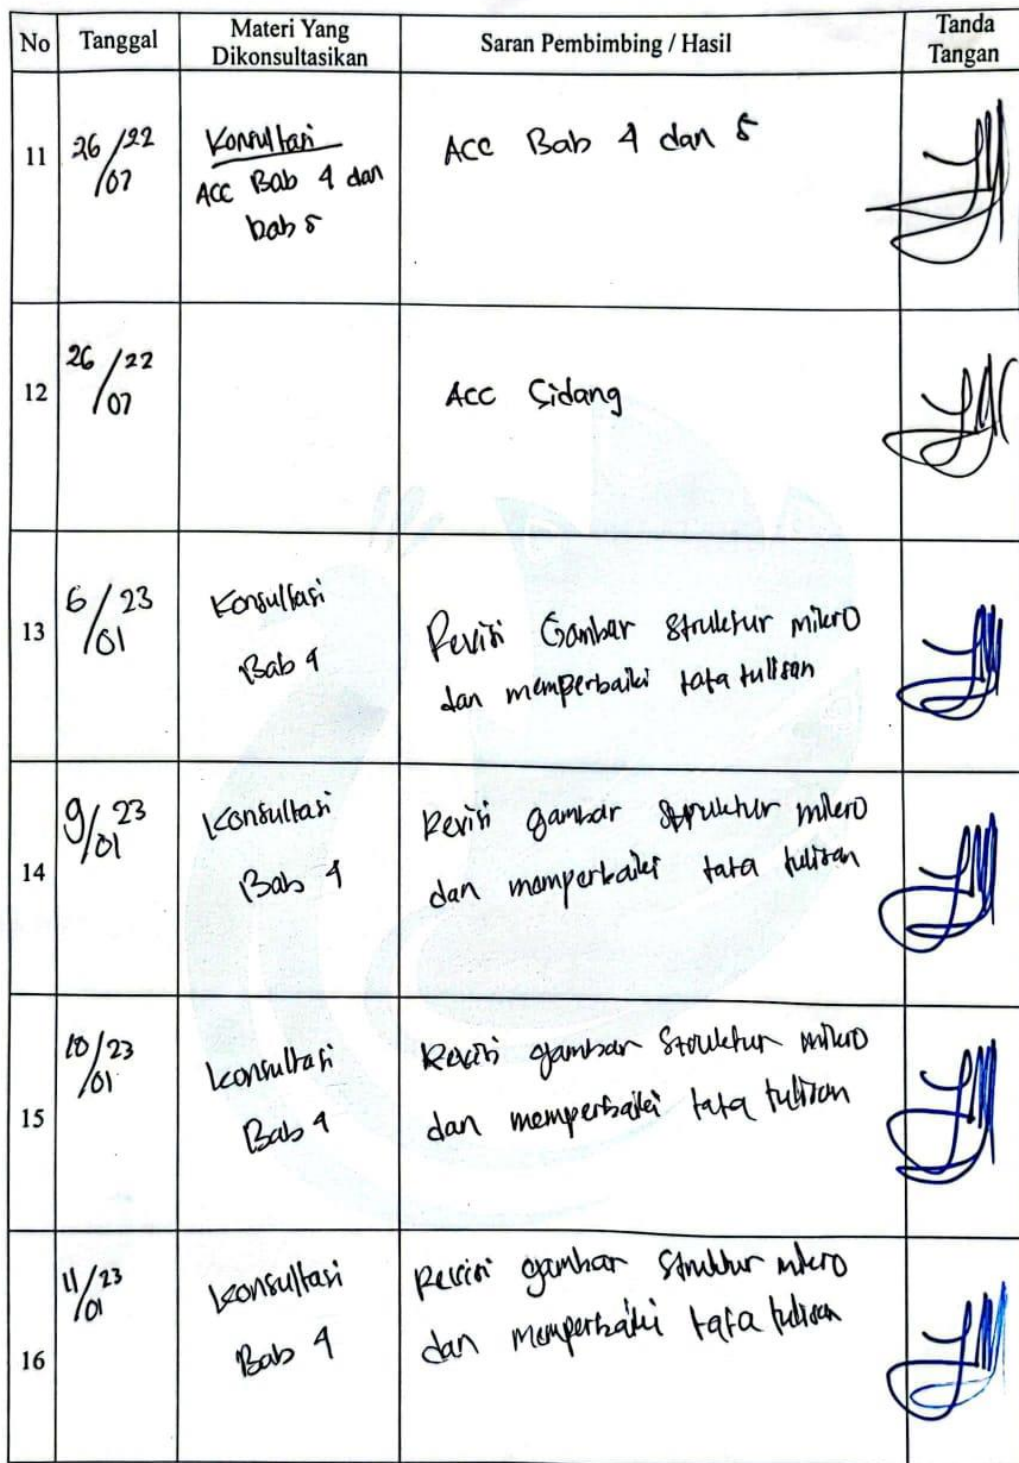 No Tanggal Materi Yang Dikonsultasikan Saran Pembimbing / Hasil Tanda Tangan
11 26/07 22 Konsultasi Acc Bab 4 dan 5
Acc Bab 4 dan
bab 5
12 26/07 22 Acc Sidang
13 6/01 23 Konsultasi Revisi Gambar Struktur mikro
Bab 4 dan memperbaiki tata tulisan
14 9/01 23 Konsultasi Revisi gambar Struktur mikro
Bab 4 dan memperbaiki tata tulisan
15 10/01 23 Konsultasi Revisi gambar Struktur mikro
Bab 4 dan memperbaiki tata tulisan
16 11/01 23 Konsultasi Revisi gambar Struktur mikro
Bab 4 dan memperbaiki tata tulisan